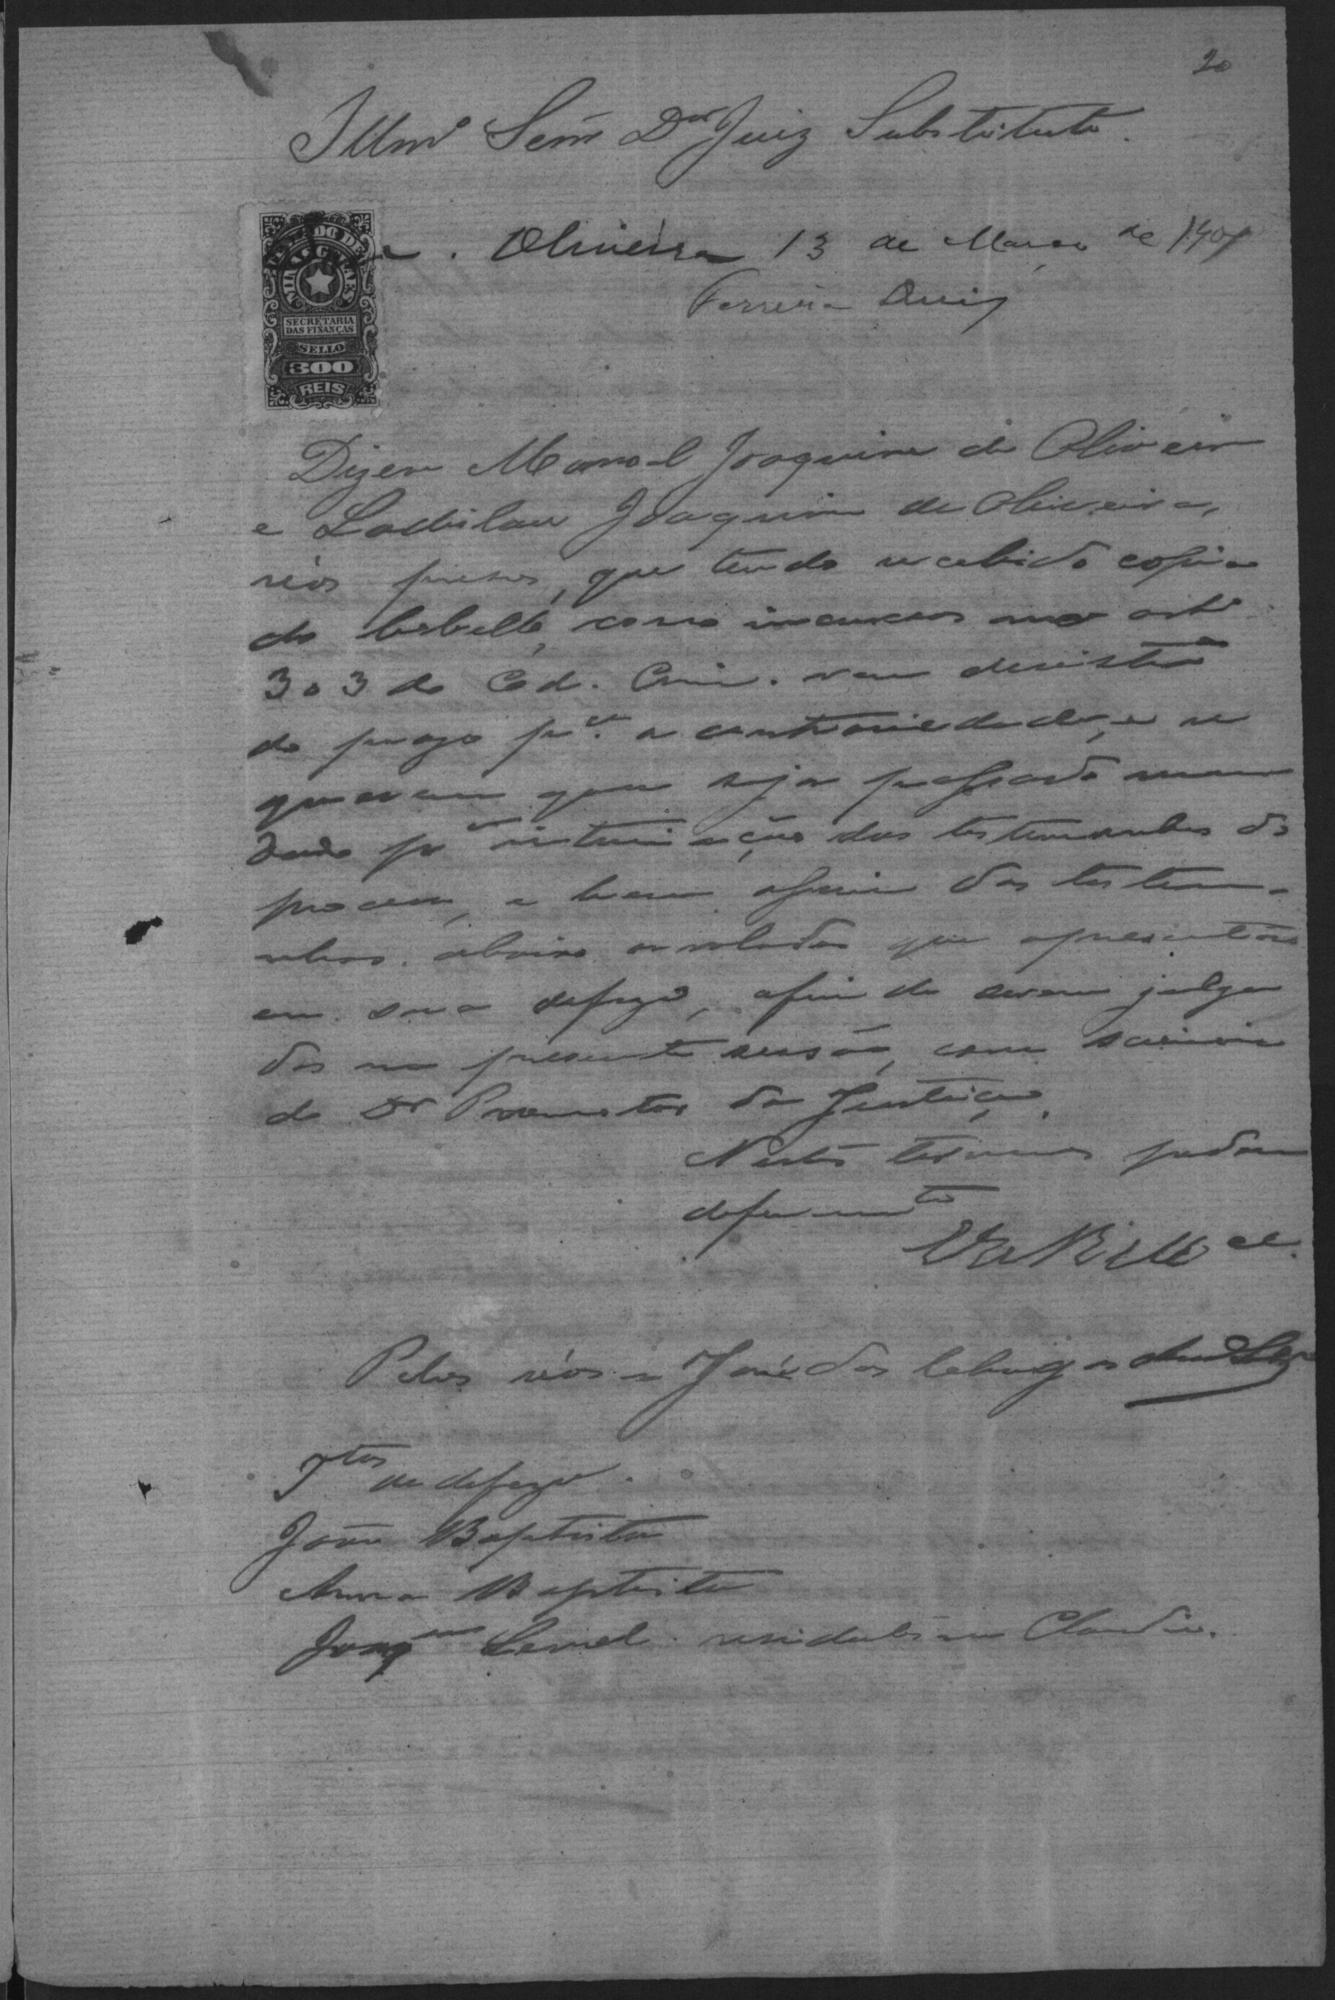 20
Illmº Senr Dor Juiz Substituto.
ESTADO DE
MINAS GERAES
SECRETARIA
DAS FINANÇAS
SELLO
300
REIS
. Oliveira 13 de Março de 1901
Ferreira
Dizem Manoel Joaquim de Oliveira
e Ladislau Joaquim de Oliveira,
réos presos, que tendo recebido copia
do libello, como incursos no artº
303 do Cod. Crim. vem desistir
do prazo pª. a contrariedade, e re
querem que seja passado man
dado pª intimação das testemunhas do
processo, e bem assim das testem-
unhas abaixo arroladas que apresentão
em sua defeza, afim de serem julga
dos na presente sessão, com sciencia
do Dr Promotor da Justiça.
Nestes termos pedem
deferimento
Pelos réos José das Chagas
Ttas de defeza.
João Baptista
Anna Baptista
Joaqm residentes em Claudio.